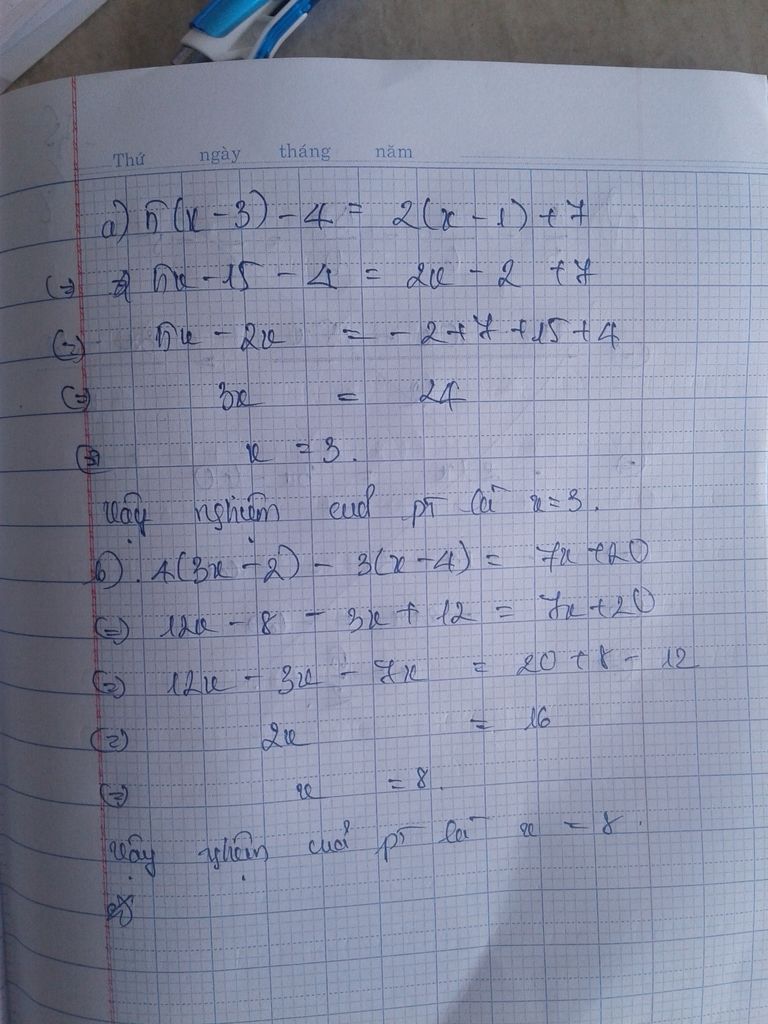 Thứ ngày tháng năm
a) 5(x - 3) - 4 = 2(x - 1) + 7
(=) 5x - 15 - 4 = 2x - 2 + 7
(=) 5x - 2x = - 2 + 7 + 15 + 4
(=) 3x = 24
(=) x = 3.
Vậy nghiệm cuả pT là x = 3.
b) 4(3x - 2) - 3(x - 4) = 7x + 20
(=) 12x - 8 - 3x + 12 = 7x + 20
(=) 12x - 3x - 7x = 20 + 8 - 12
(=) 2x = 16
(=) x = 8.
Vậy nghiệm cuả pT là x = 8.